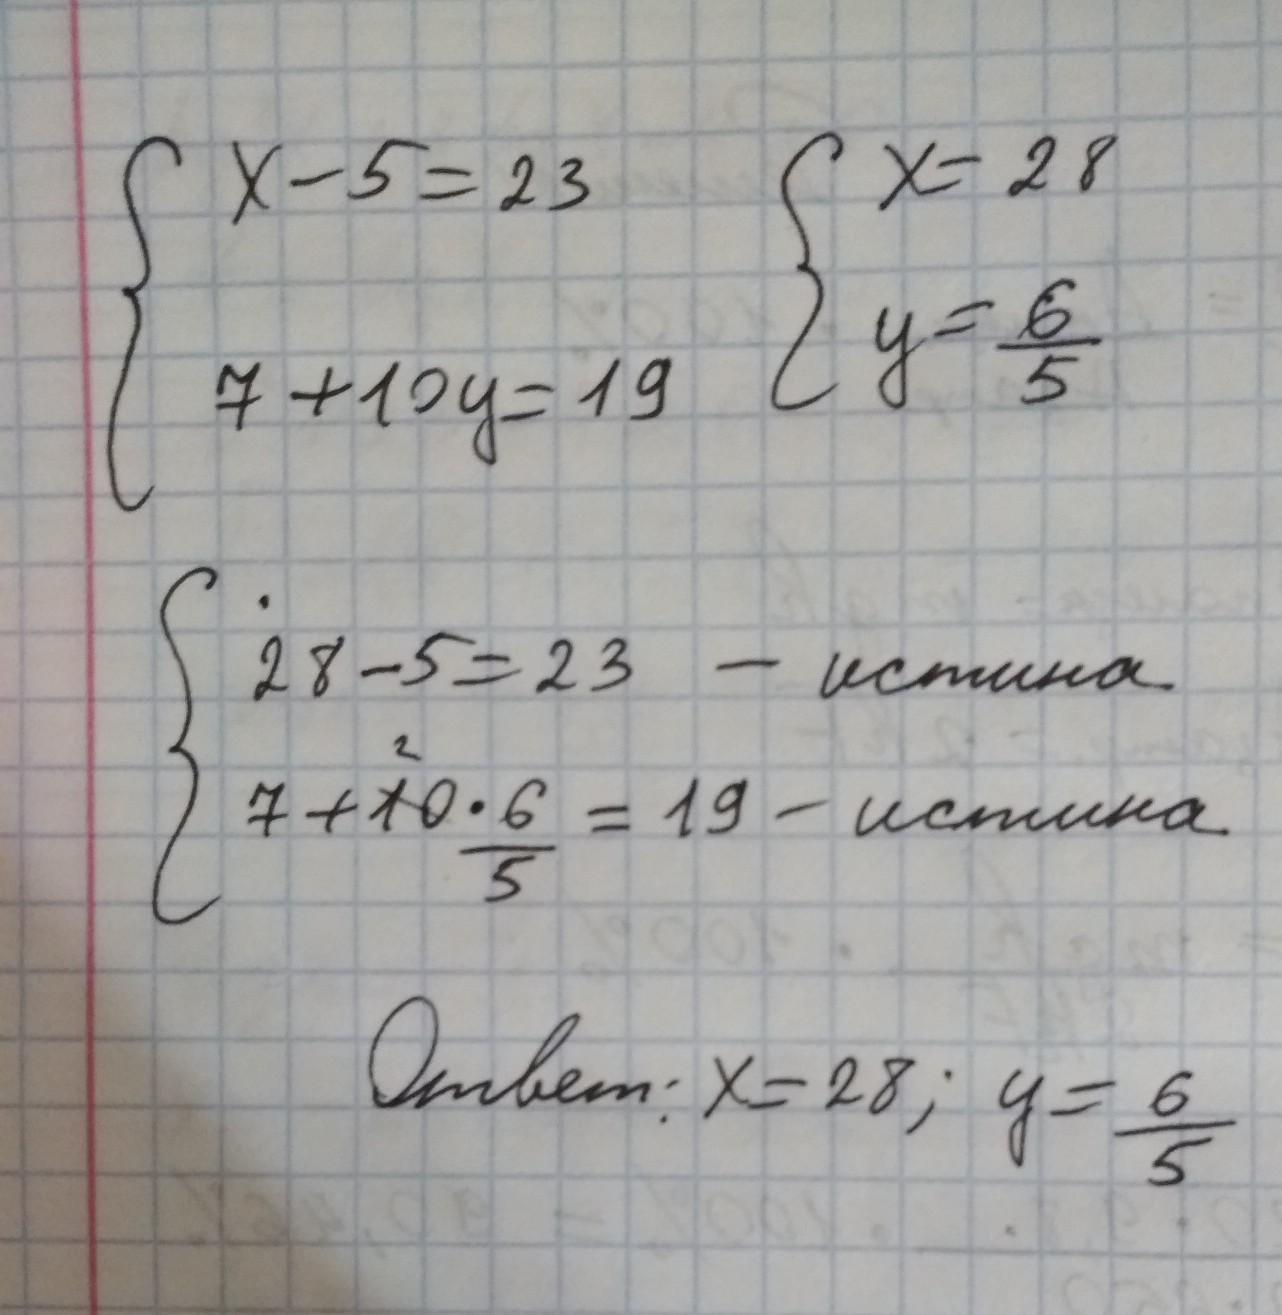 x - 5 = 23
7 + 10y = 19
x = 28
y = 6/5
28 - 5 = 23 - истина
2
7 + 10 · 6/5 = 19 - истина
Ответ: x = 28; y = 6/5